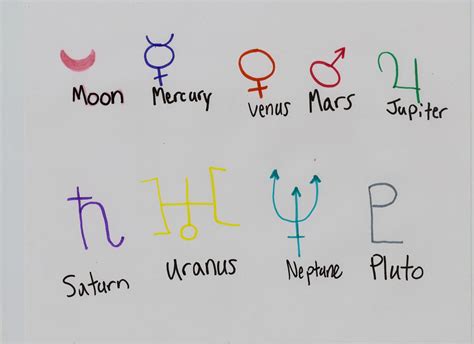 Moon Mercury Venus Mars Jupiter
Saturn Uranus Neptune Pluto